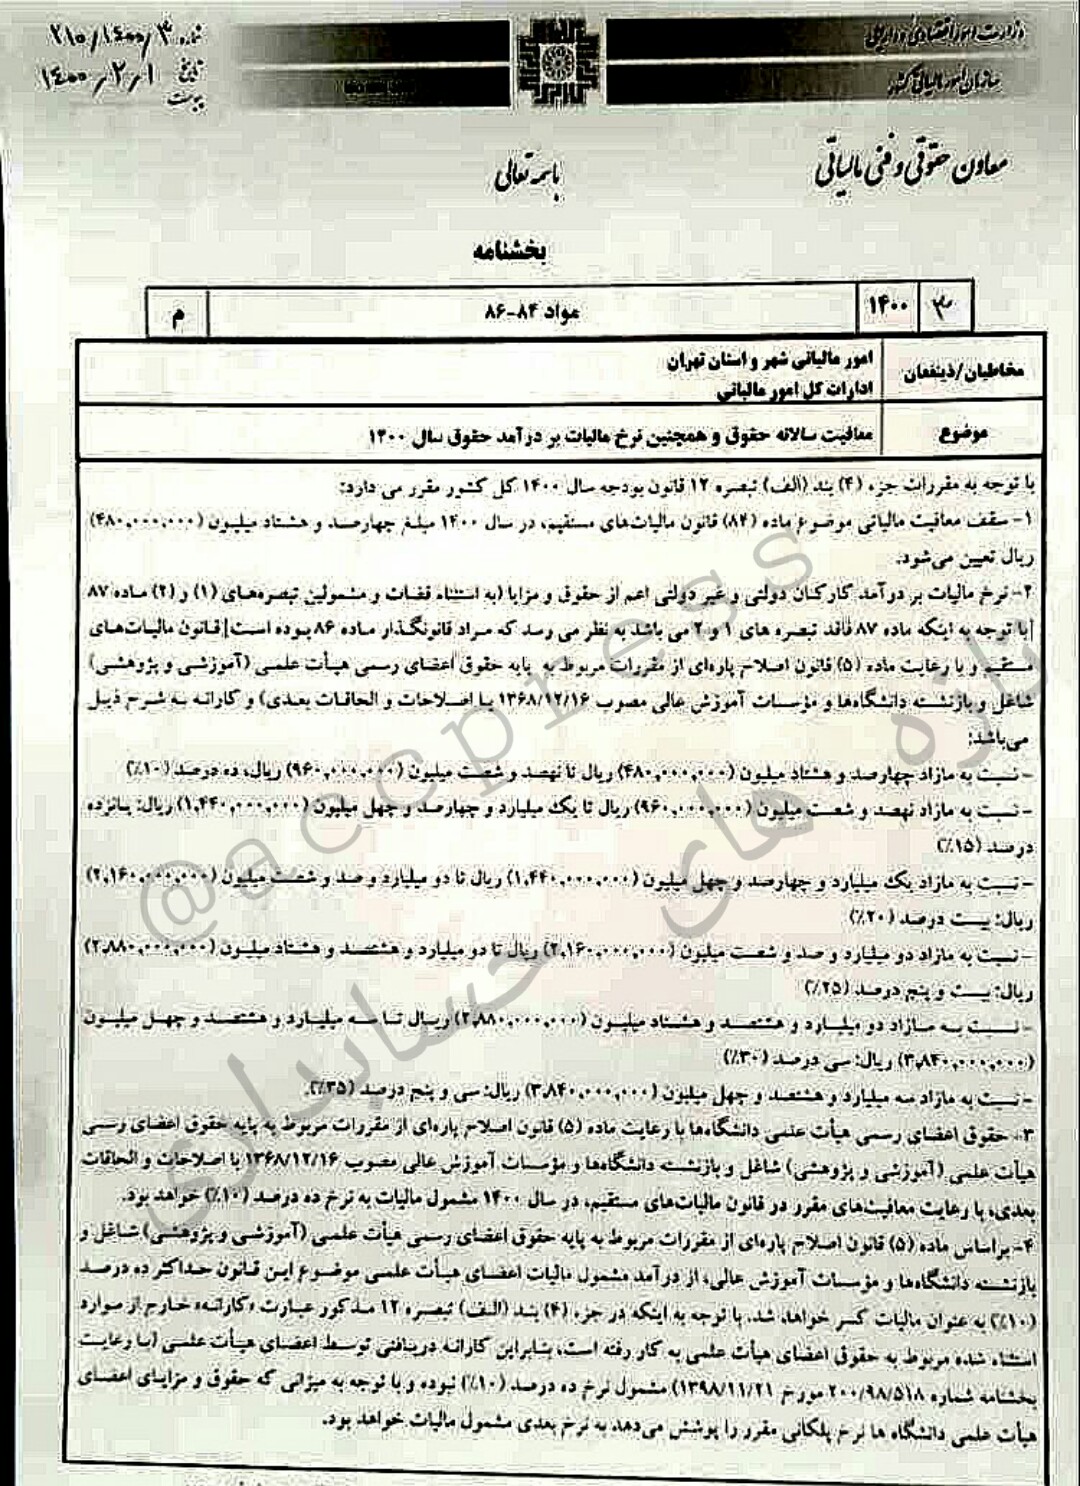 وزارت امور اقتصادی و دارایی
سازمان امور مالیاتی کشور
شماره ۲۱۰/۱۴۰۰/۳
تاریخ ۱۴۰۰/۲/۱
پیوست
معاون حقوقی و فنی مالیاتی
باسمه تعالی
بخشنامه
۳ ۱۴۰۰ مواد ۸۴-۸۶ م
مخاطبان/ذینفعان امور مالیاتی شهر و استان تهران
ادارات کل امور مالیاتی
موضوع معافیت سالانه حقوق و همچنین نرخ مالیات بر درآمد حقوق سال ۱۴۰۰
با توجه به مقررات جزء (۴) بند (الف) تبصره ۱۲ قانون بودجه سال ۱۴۰۰ کل کشور مقرر می دارد:
۱- سقف معافیت مالیاتی موضوع ماده (۸۴) قانون مالیات‌های مستقیم، در سال ۱۴۰۰ مبلغ چهارصد و هشتاد میلیون (۴۸۰,۰۰۰,۰۰۰)
ریال تعیین می‌شود.
۲- نرخ مالیات بر درآمد کارکنان دولتی و غیر دولتی اعم از حقوق و مزایا (به استثناء قضات و مشمولین تبصره‌های (۱) و (۲) ماده ۸۷
[با توجه به اینکه ماده ۸۷ فاقد تبصره های ۱ و ۲ می باشد به نظر می رسد که مراد قانونگذار ماده ۸۶ بوده است] قانون مالیات‌های
مستقیم و با رعایت ماده (۵) قانون اصلاح پاره‌ای از مقررات مربوط به پایه حقوق اعضای رسمی هیأت علمی (آموزشی و پژوهشی)
شاغل و بازنشسته دانشگاه‌ها و مؤسسات آموزش عالی مصوب ۱۳۶۸/۱۲/۱۶ با اصلاحات و الحاقات بعدی) و کارانه به شرح ذیل
می‌باشد:
- نسبت به مازاد چهارصد و هشتاد میلیون (۴۸۰,۰۰۰,۰۰۰) ریال تا نهصد و شصت میلیون (۹۶۰,۰۰۰,۰۰۰) ریال، ده درصد (۱۰٪)
- نسبت به مازاد نهصد و شصت میلیون (۹۶۰,۰۰۰,۰۰۰) ریال تا یک میلیارد و چهارصد و چهل میلیون (۱,۴۴۰,۰۰۰,۰۰۰) ریال: پانزده
درصد (۱۵٪)
- نسبت به مازاد یک میلیارد و چهارصد و چهل میلیون (۱,۴۴۰,۰۰۰,۰۰۰) ریال تا دو میلیارد و صد و شصت میلیون (۲,۱۶۰,۰۰۰,۰۰۰)
ریال: بیست درصد (۲۰٪)
- نسبت به مازاد دو میلیارد و صد و شصت میلیون (۲,۱۶۰,۰۰۰,۰۰۰) ریال تا دو میلیارد و هشتصد و هشتاد میلیون (۲,۸۸۰,۰۰۰,۰۰۰)
ریال: بیست و پنج درصد (۲۵٪)
- نسبت به مازاد دو میلیارد و هشتصد و هشتاد میلیون (۲,۸۸۰,۰۰۰,۰۰۰) ریال تا سه میلیارد و هشتصد و چهل میلیون
(۳,۸۴۰,۰۰۰,۰۰۰) ریال: سی درصد (۳۰٪)
- نسبت به مازاد سه میلیارد و هشتصد و چهل میلیون (۳,۸۴۰,۰۰۰,۰۰۰) ریال: سی و پنج درصد (۳۵٪).
۳- حقوق اعضای رسمی هیأت علمی دانشگاه‌ها با رعایت ماده (۵) قانون اصلاح پاره‌ای از مقررات مربوط به پایه حقوق اعضای رسمی
هیأت علمی (آموزشی و پژوهشی) شاغل و بازنشسته دانشگاه‌ها و مؤسسات آموزش عالی مصوب ۱۳۶۸/۱۲/۱۶ با اصلاحات و الحاقات
بعدی، با رعایت معافیت‌های مقرر در قانون مالیات‌های مستقیم، در سال ۱۴۰۰ مشمول مالیات به نرخ ده درصد (۱۰٪) خواهد بود.
۴- براساس ماده (۵) قانون اصلاح پاره‌ای از مقررات مربوط به پایه حقوق اعضای رسمی هیأت علمی (آموزشی و پژوهشی) شاغل و
بازنشسته دانشگاه‌ها و مؤسسات آموزش عالی، از درآمد مشمول مالیات اعضای هیأت علمی موضوع این قانون حداکثر ده درصد
(۱۰٪) به عنوان مالیات کسر خواهد شد. با توجه به اینکه در جزء (۴) بند (الف) تبصره ۱۲ مذکور عبارت «کارانه» خارج از موارد
استثناء شده مربوط به حقوق اعضای هیأت علمی به کار رفته است، بنابراین کارانه دریافتی توسط اعضای هیأت علمی (با رعایت
بخشنامه شماره ۲۰۰/۹۸/۵۱۸ مورخ ۱۳۹۸/۱۱/۲۱) مشمول نرخ ده درصد (۱۰٪) نبوده و با توجه به میزانی که حقوق و مزایای اعضای
هیأت علمی دانشگاه ها نرخ پلکانی مقرر را پوشش می‌دهد به نرخ بعدی مشمول مالیات خواهد بود.
@accpress
تازه های حسابداری